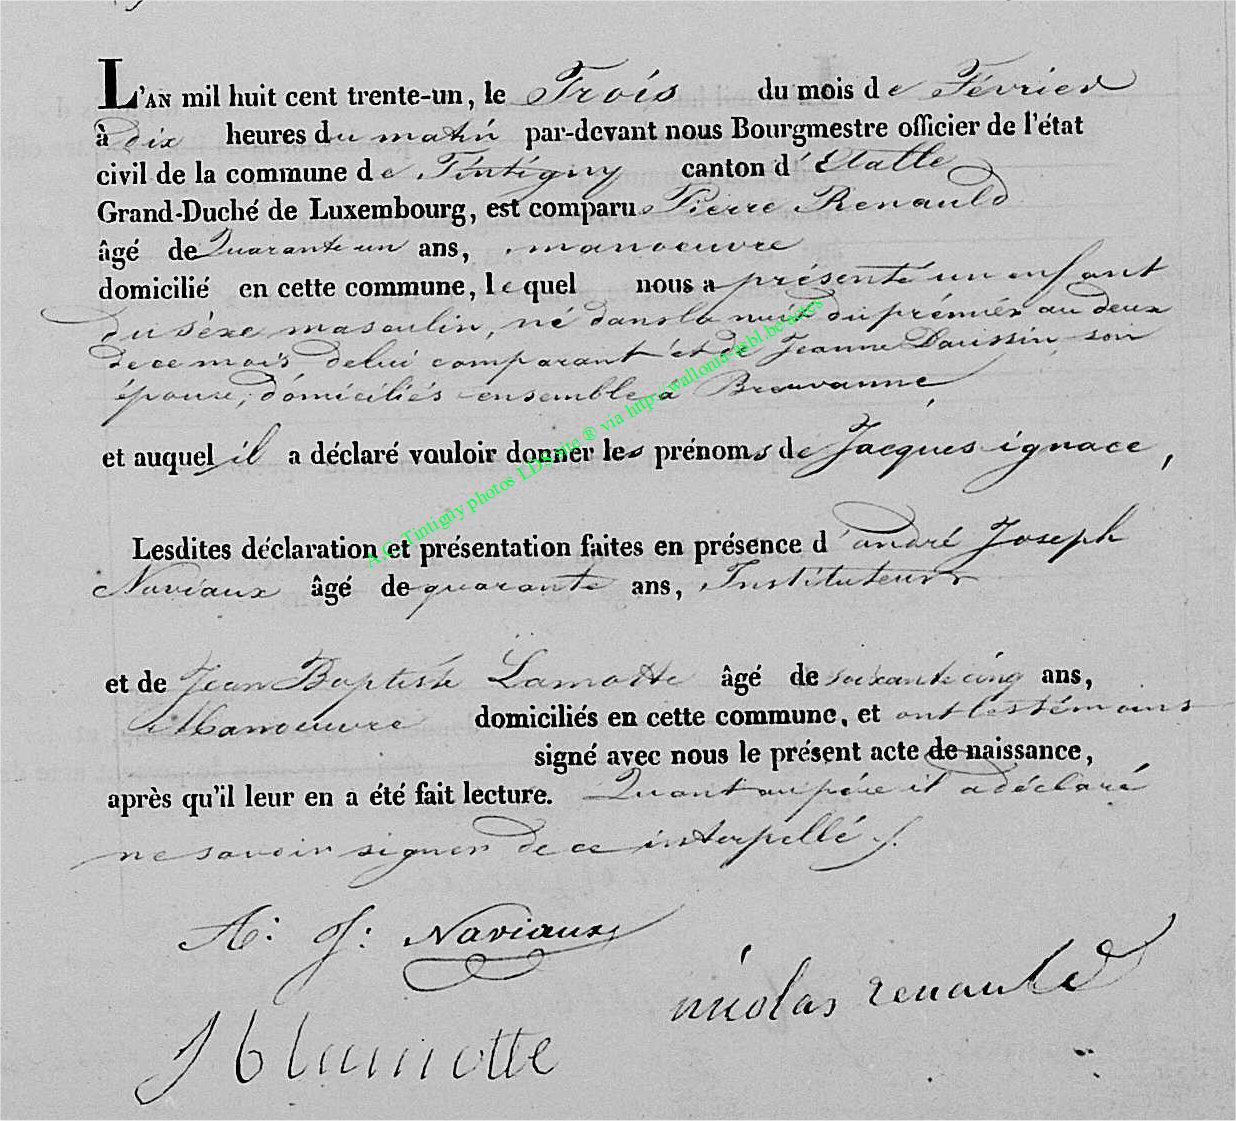 L'AN mil huit cent trente-un, le Trois du mois de Février
à dix heures du matin par-devant nous Bourgmestre officier de l'état
civil de la commune de Tintigny canton d'Etalle
Grand-Duché de Luxembourg, est comparu Pierre Renauld
âgé de Quarante un ans, manoeuvre
domicilié en cette commune, lequel nous a présenté un enfant
du sèxe masculin, né dans la nuit du prémiér au deux
de ce mois, de lui comparant et de Jeanne Daussin son
épouse, domiciliés ensemble à Breuvanne
et auquel il a déclaré vouloir donner les prénoms de Jacques ignace,
Lesdites déclaration et présentation faites en présence d'andré Joseph
Naviaux âgé de quarante ans, Instituteur
et de Jean Baptiste Lamotte âgé de soixante cinq ans,
Manoeuvre domiciliés en cette commune, et ont les témoins
signé avec nous le présent acte de naissance,
après qu'il leur en a été fait lecture. Quant au père il a déclaré
ne savoir signer de ce interpellé.
A: J: Naviaux
nicolas renauld
J b lamotte
A.G. Tintigny photos LDS site ® via http://wallonia-asbl.be/actes